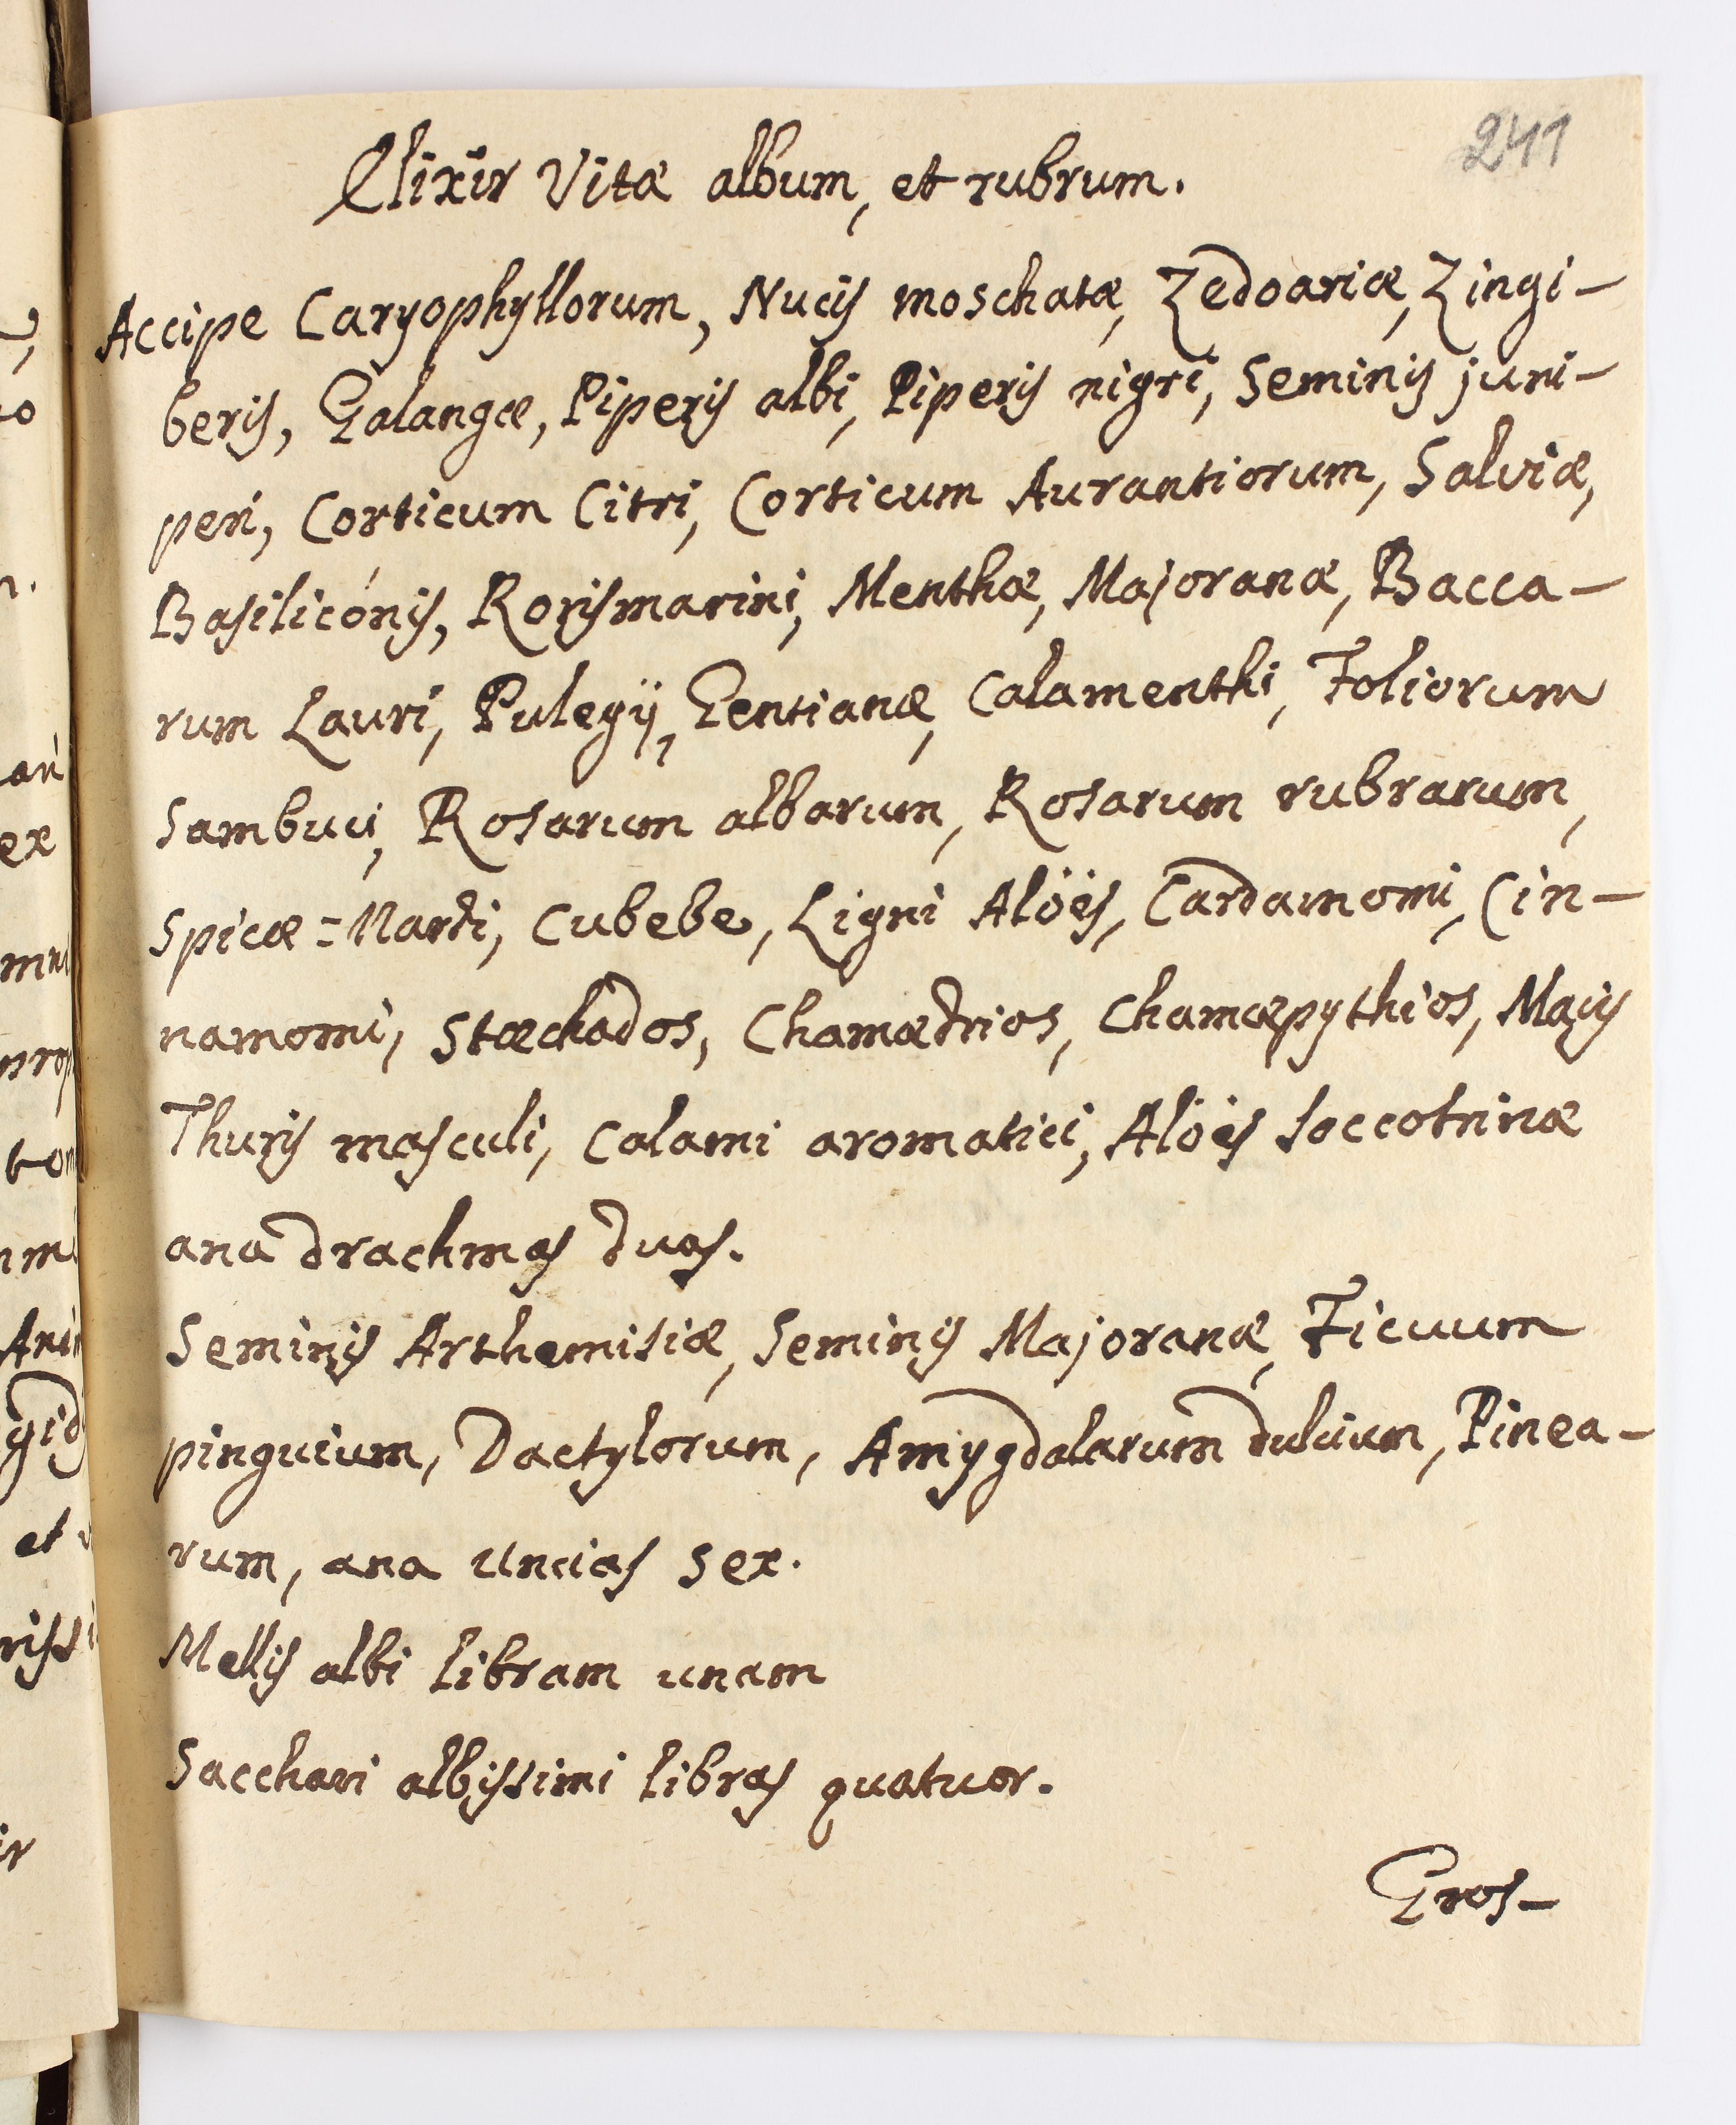 241
Elixir Vitæ album, et rubrum.
Accipe Caryophyllorum, Nucis moschatæ, Zedoariæ, Zingi-
beris, Galangæ, Piperis albi, Piperis nigri, Seminis juni-
peri, Corticum Citri, Corticum Aurantiorum, Salviæ,
Basilicónis, Rorismarini, Menthæ, Majoranæ, Bacca-
rum Lauri, Pulegij, Gentianæ, Calamenthi, Foliorum
Sambuci, Rosarum albarum, Rosarum rubrarum,
Spicæ=Nardi, Cubebe, Ligni Alöes, Cardamomi, Cin-
namomi, Stæchados, Chamædrios, Chamæpythios, Macis
Thuris masculi, Calami aromatici, Alöes Soccotrinæ
ana drachmas duas.
Seminis Arthemisiæ, Seminis Majoranæ, Ficuum
pinguium, Dactylorum, Amygdalarum dulcium, Pinea-
rum, ana Uncias sex.
Mellis albi libram unam
Sacchari albissimi libras quatuor.
Gros-